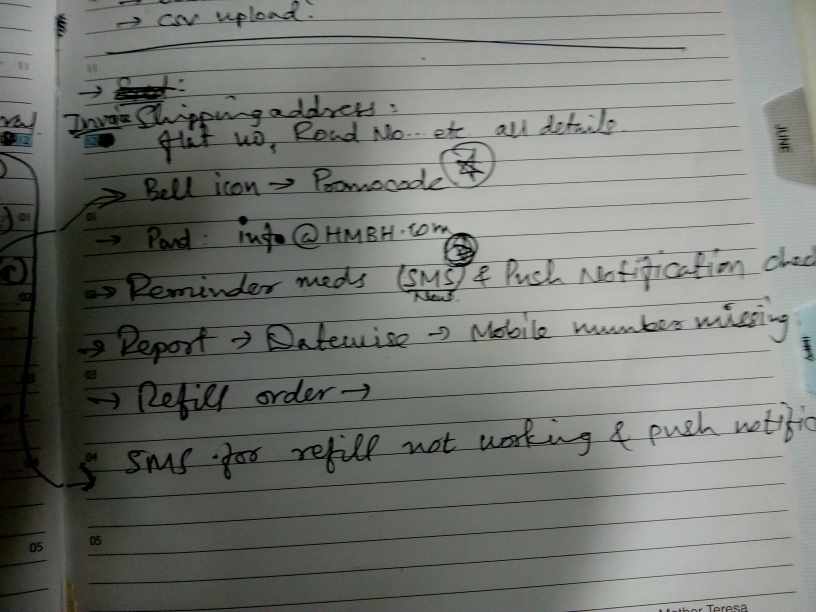 → csv upload.
→
Invoice Shipping address:
flat no, Road No... etc all details.
→ Bell icon → Promocode
→ Pard: info@HMBH.com
→ Reminder meds (SMS) & Push Notification chec
→ Report → Datewise → Mobile number missing
→ Refill order →
→ SMS for refill not working & push notific
05
05
Mother Teresa
JUNE